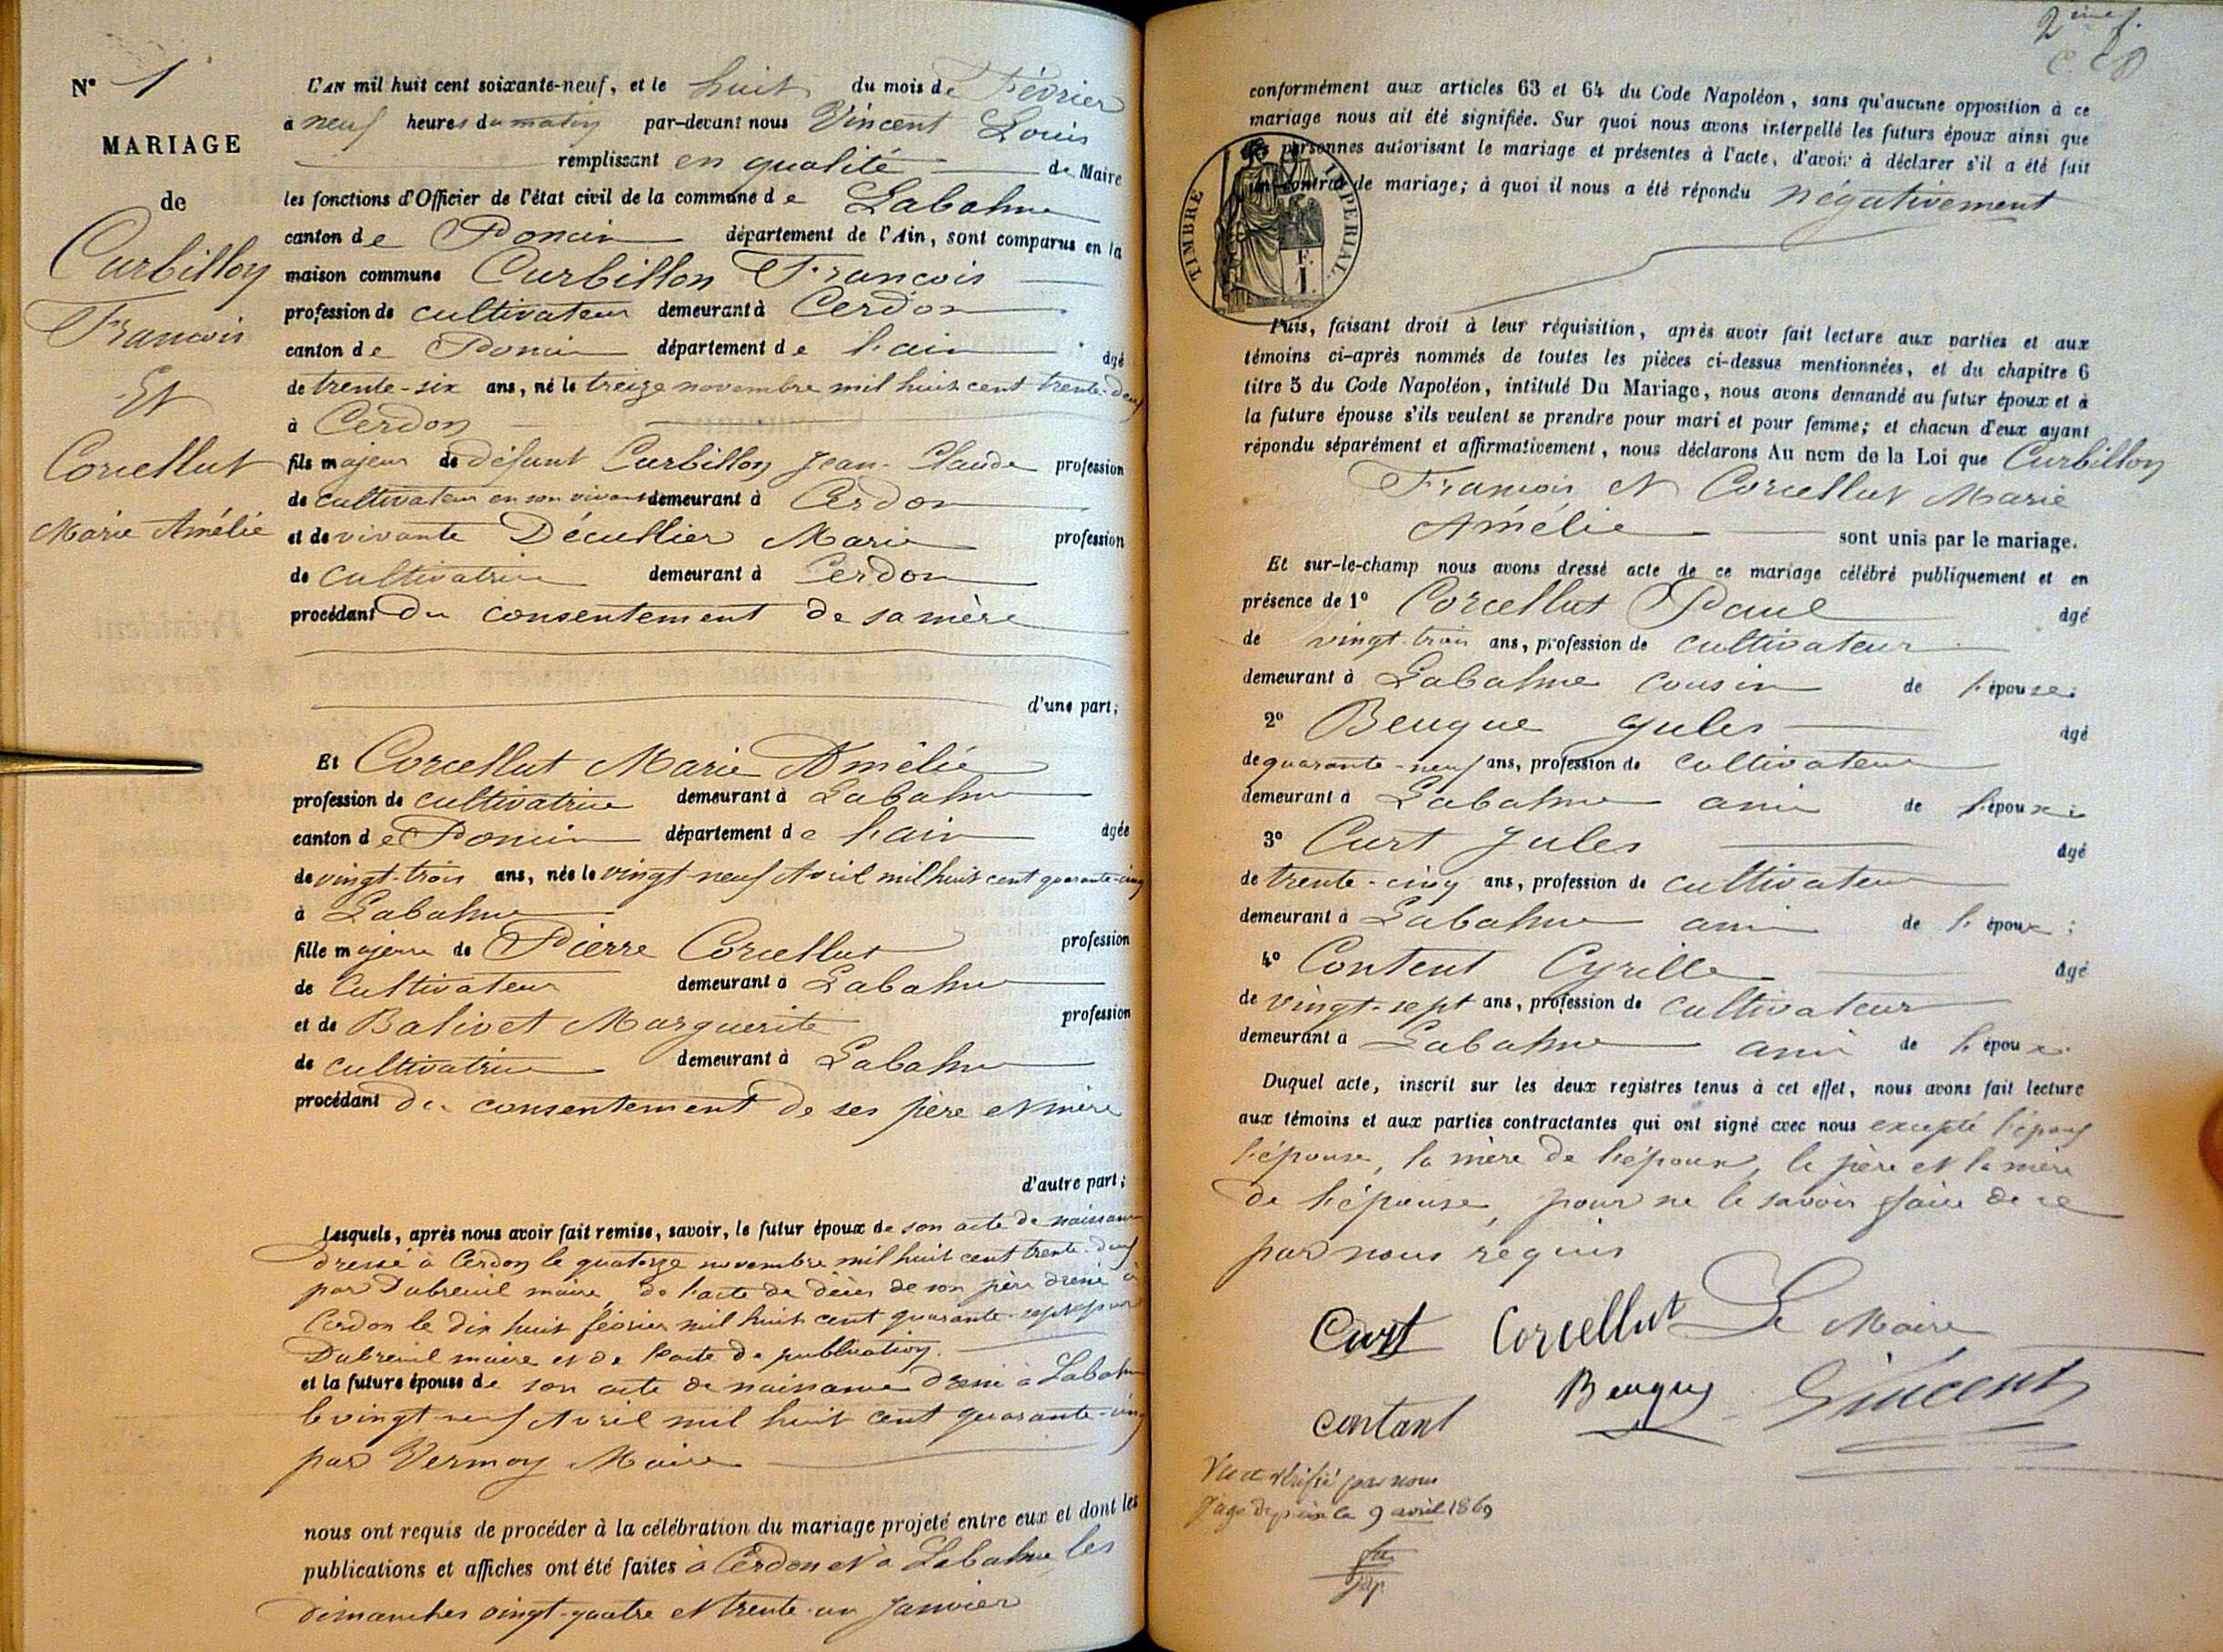 N° 1
MARIAGE
de
Curbillon
François
Et
Corcellut
Marie Amélie
L'AN mil huit cent soixante-neuf, et le huit du mois de Février
à neuf heures du matin par-devant nous Vincent Louis
remplissant en qualité de Maire
les fonctions d'Officier de l'état civil de la commune de Labalme
canton de Poncin département de l'Ain, sont comparus en la
maison commune Curbillon François
profession de cultivateur demeurant à Cerdon
canton de Poncin département de l'ain âgé
de trente-six ans, né le treize novembre mil huit cent trente-deux
à Cerdon
fils majeur de défunt Curbillon Jean-Claude profession
de cultivateur en son vivant demeurant à Cerdon
et de vivante Décullier Marie profession
de cultivatrice demeurant à Cerdon
procédant du consentement de sa mère
d'une part;
Et Corcellut Marie Amélie
profession de cultivatrice demeurant à Labalme
canton de Poncin département de l'ain âgée
de vingt-trois ans, née le vingt-neuf Avril mil huit cent quarante-cinq
à Labalme
fille majeure de Pierre Corcellut profession
de Cultivateur demeurant à Labalme
et de Balivet Marguerite profession
de cultivatrice demeurant à Labalme
procédant du consentement de ses père et mère
d'autre part;
Lesquels, après nous avoir fait remise, savoir, le futur époux de son acte de naissance
dressé à Cerdon le quatorze novembre mil huit cent trente-deux
par Dubreuil maire, de l'acte de décès de son père dressé à
Cerdon le dix huit février mil huit cent quarante-sept par
Dubreuil maire et de l'acte de publication.
et la future épouse de son acte de naissance dressé à Labalme
le vingt neuf Avril mil huit cent quarante-cinq
par Vermoy Maire
nous ont requis de procéder à la célébration du mariage projeté entre eux et dont les
publications et affiches ont été faites à Cerdon et à Labalme, les
dimanches vingt-quatre et trente-un Janvier
2ème f.
conformément aux articles 63 et 64 du Code Napoléon, sans qu'aucune opposition à ce
mariage nous ait été signifiée. Sur quoi nous avons interpellé les futurs époux ainsi que
les personnes autorisant le mariage et présentes à l'acte, d'avoir à déclarer s'il a été fait
un contrat de mariage; à quoi il nous a été répondu négativement
TIMBRE IMPERIAL.
Puis, faisant droit à leur réquisition, après avoir fait lecture aux parties et aux
témoins ci-après nommés de toutes les pièces ci-dessus mentionnées, et du chapitre 6
titre 5 du Code Napoléon, intitulé Du Mariage, nous avons demandé au futur époux et à
la future épouse s'ils veulent se prendre pour mari et pour femme; et chacun d'eux ayant
répondu séparément et affirmativement, nous déclarons Au nom de la Loi que Curbillon
François et Corcellut Marie
Amélie sont unis par le mariage.
Et sur-le-champ nous avons dressé acte de ce mariage célébré publiquement et en
présence de 1° Corcellut Paul âgé
de vingt-trois ans, profession de cultivateur
demeurant à Labalme cousin de l'épouse;
2° Beuque Jules âgé
de quarante-neuf ans, profession de cultivateur
demeurant à Labalme ami de l'époux;
3° Curt Jules âgé
de trente-cinq ans, profession de cultivateur
demeurant à Labalme ami de l'époux;
4° Content Cyrille âgé
de vingt-sept ans, profession de cultivateur
demeurant à Labalme ami de l'époux.
Duquel acte, inscrit sur les deux registres tenus à cet effet, nous avons fait lecture
aux témoins et aux parties contractantes qui ont signé avec nous excepté l'époux
l'épouse, la mère de l'époux, le père et la mère
de l'épouse, pour ne le savoir faire de ce
par nous requis
Curt Corcellut Le Maire
contant Beuque Vincent
Vu et vérifié par nous
Juge de paix le 9 avril 1869